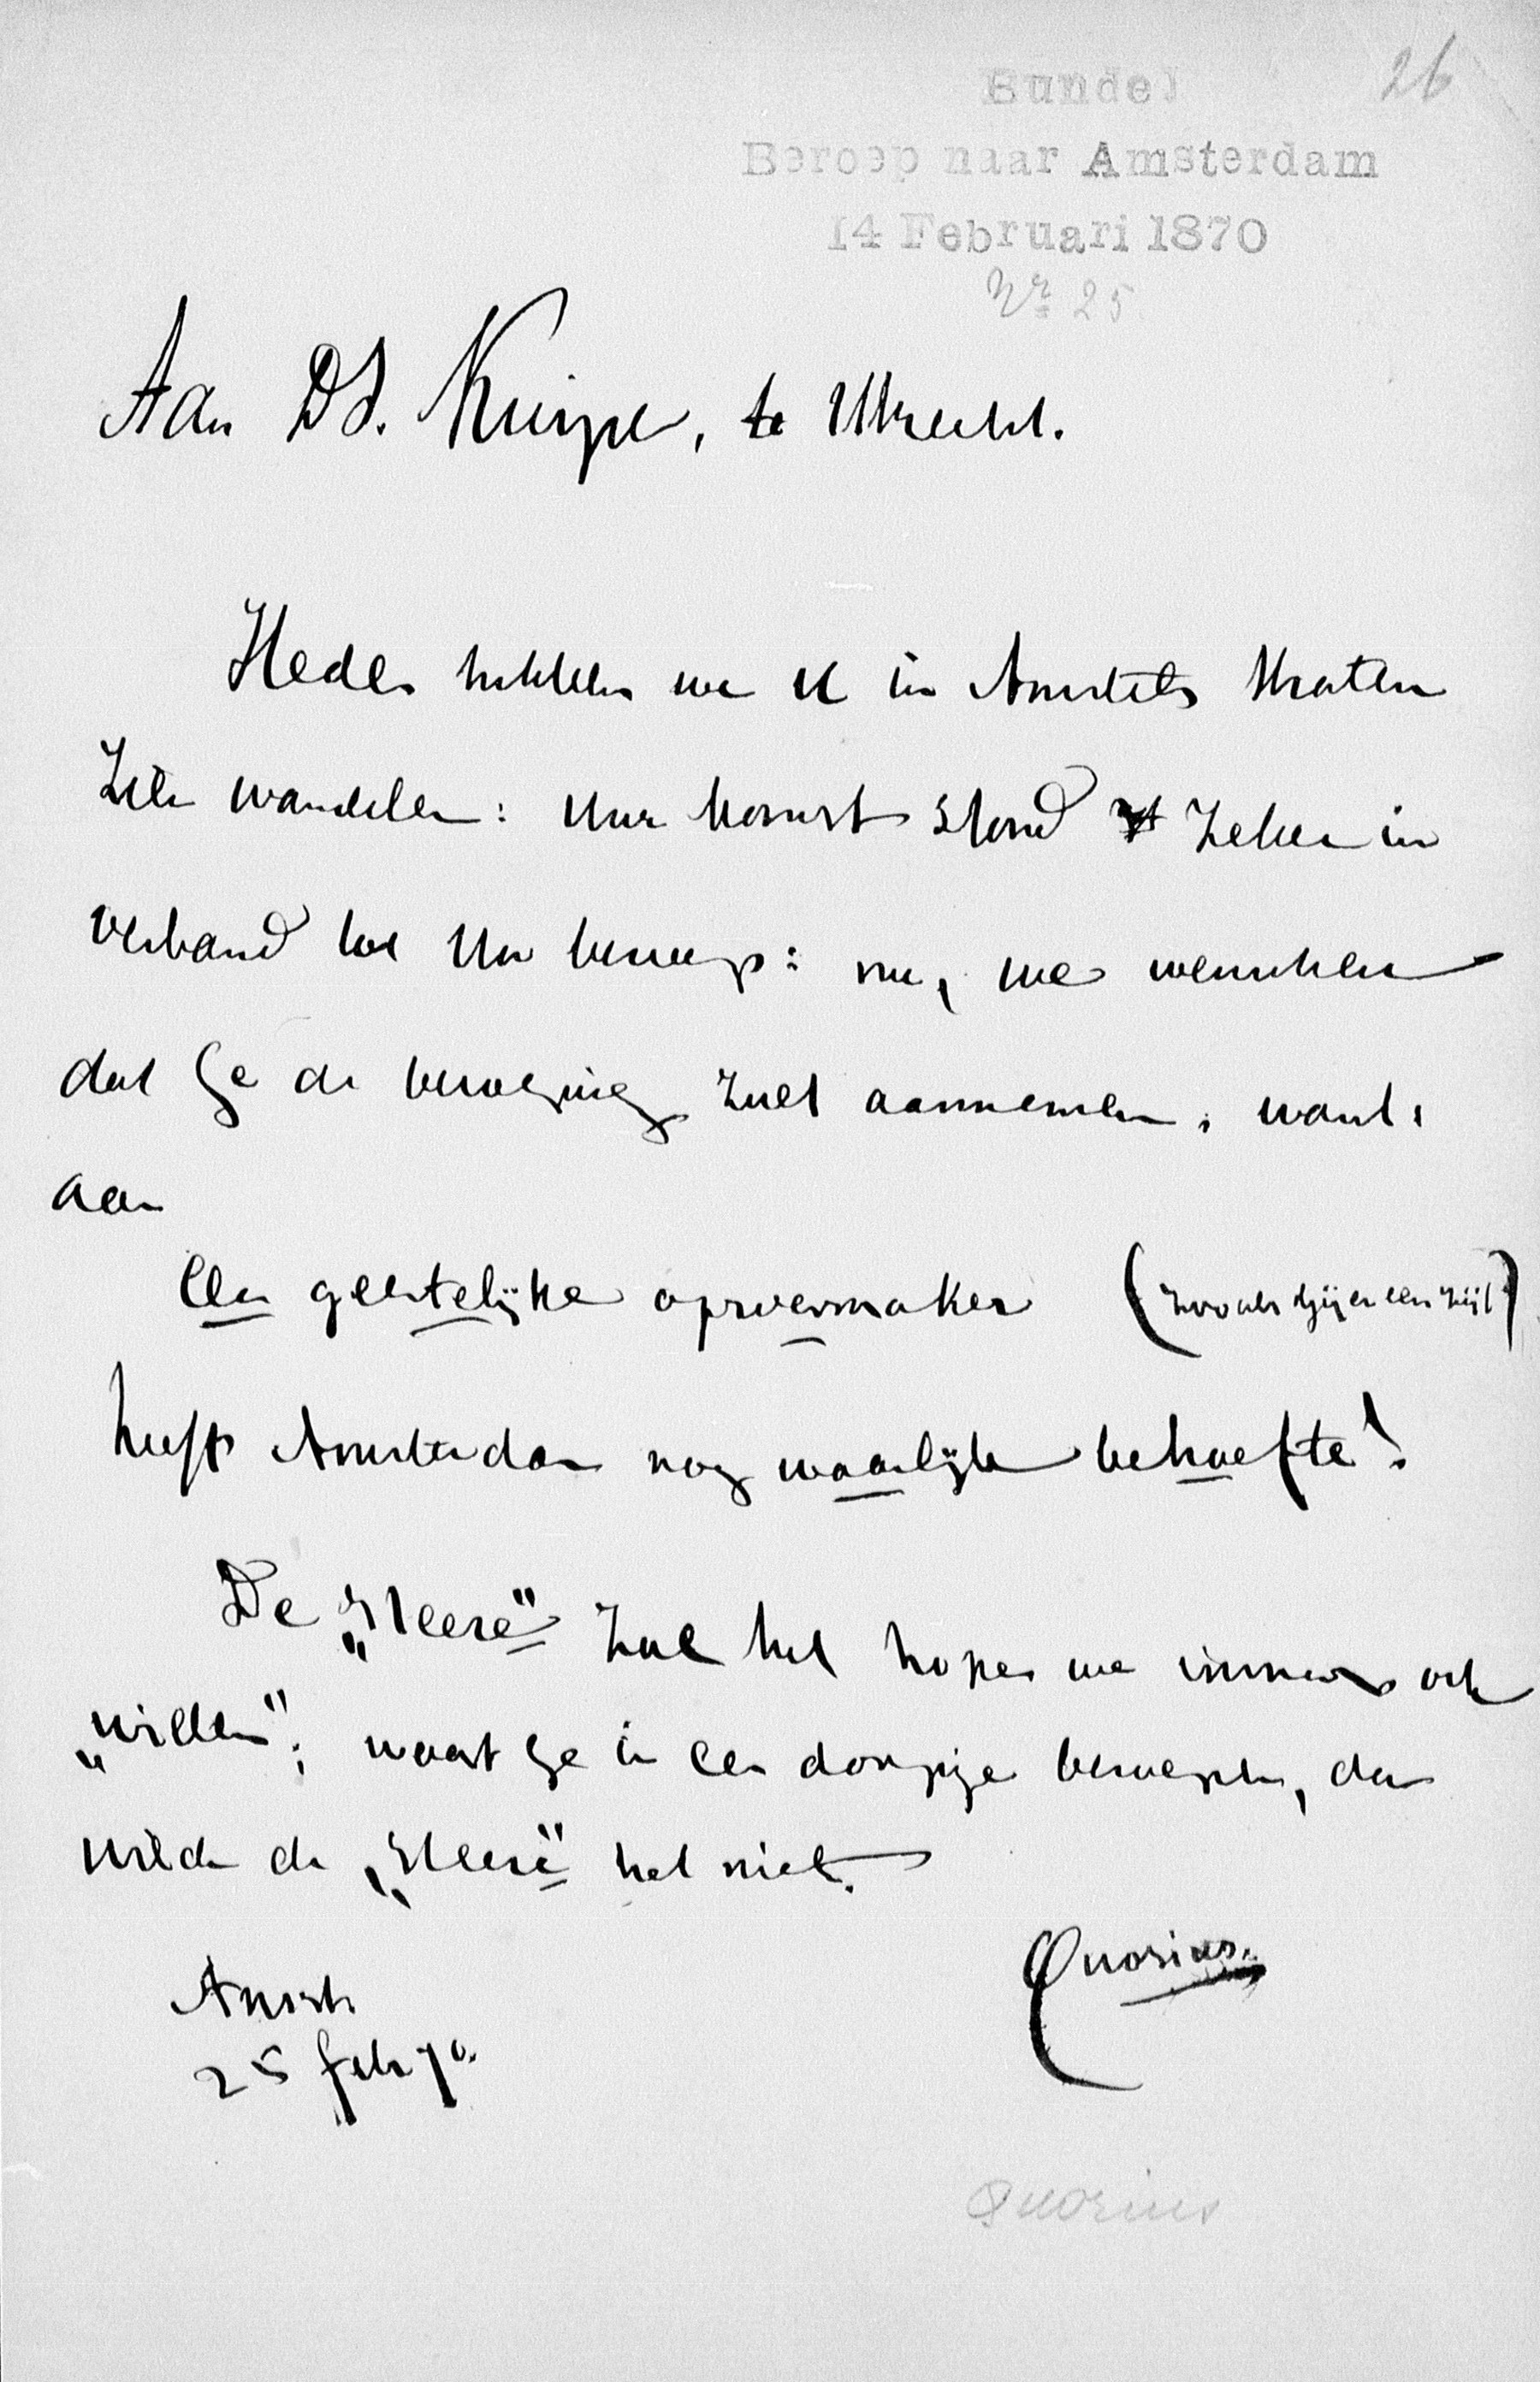 26
Bundel
Beroep naar Amsterdam
14 Februari 1870
Nr 25
Aan DS. Kuiper, te Utrecht.
Heden hebben we U in Amstels straten
zien wandelen: Uwe komst stond zeker in
verband tot Uw beroep: nu, we wenschen
dat Ge de beroeping zult aannemen, want,
aan
een geestelijke oproermaker (zooals Gij er een zijt)
heeft Amsterdam nog waarlijk behoefte!
De „Heere" zal het hopen we immers ook
„willen"; waart ge in een dorpje beroepen, dan
wilde de „Heere" het niet.
Quorius.
Amst
25 feb 70.
Quorius